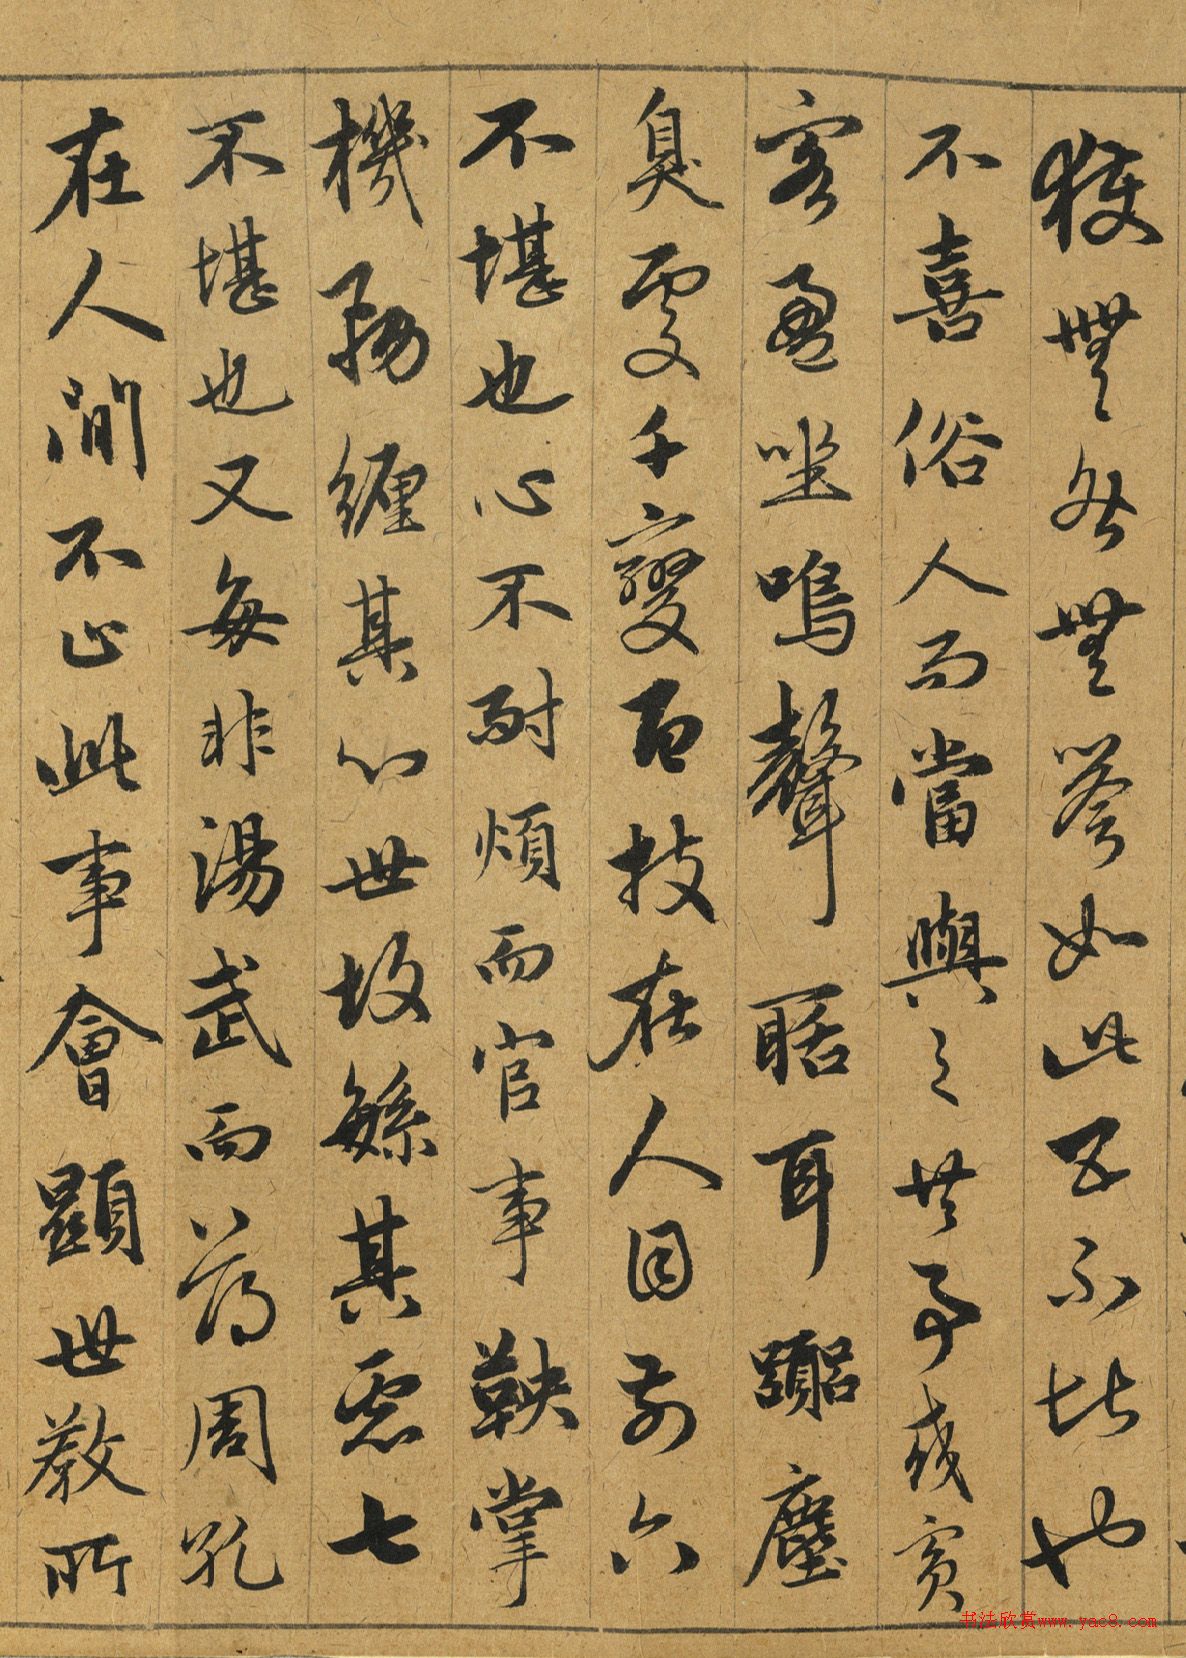 獲無咎無譽如此五不堪也
不喜俗人而當與之共事或賓
客盈坐鳴聲聒耳囂塵
臭處千變百技在人目前六
不堪也心不耐煩而官事鞅掌
機務纏其心世故繁其慮七
不堪也又每非湯武而薄周孔
在人間不止此事會顯世教所
书法欣赏www.yac8.com